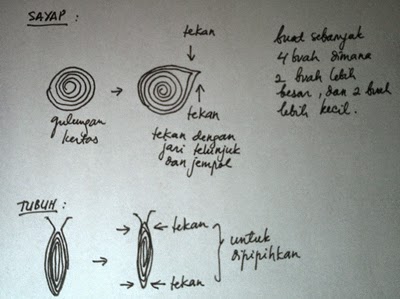 SAYAP :
tekan
gulungan
kertas
tekan
tekan dengan
jari telunjuk
dan jempol
buat sebanyak
4 buah dimana
2 buah lebih
besar, dan 2 buah
lebih kecil.
TUBUH :
tekan
tekan
untuk
dipipihkan